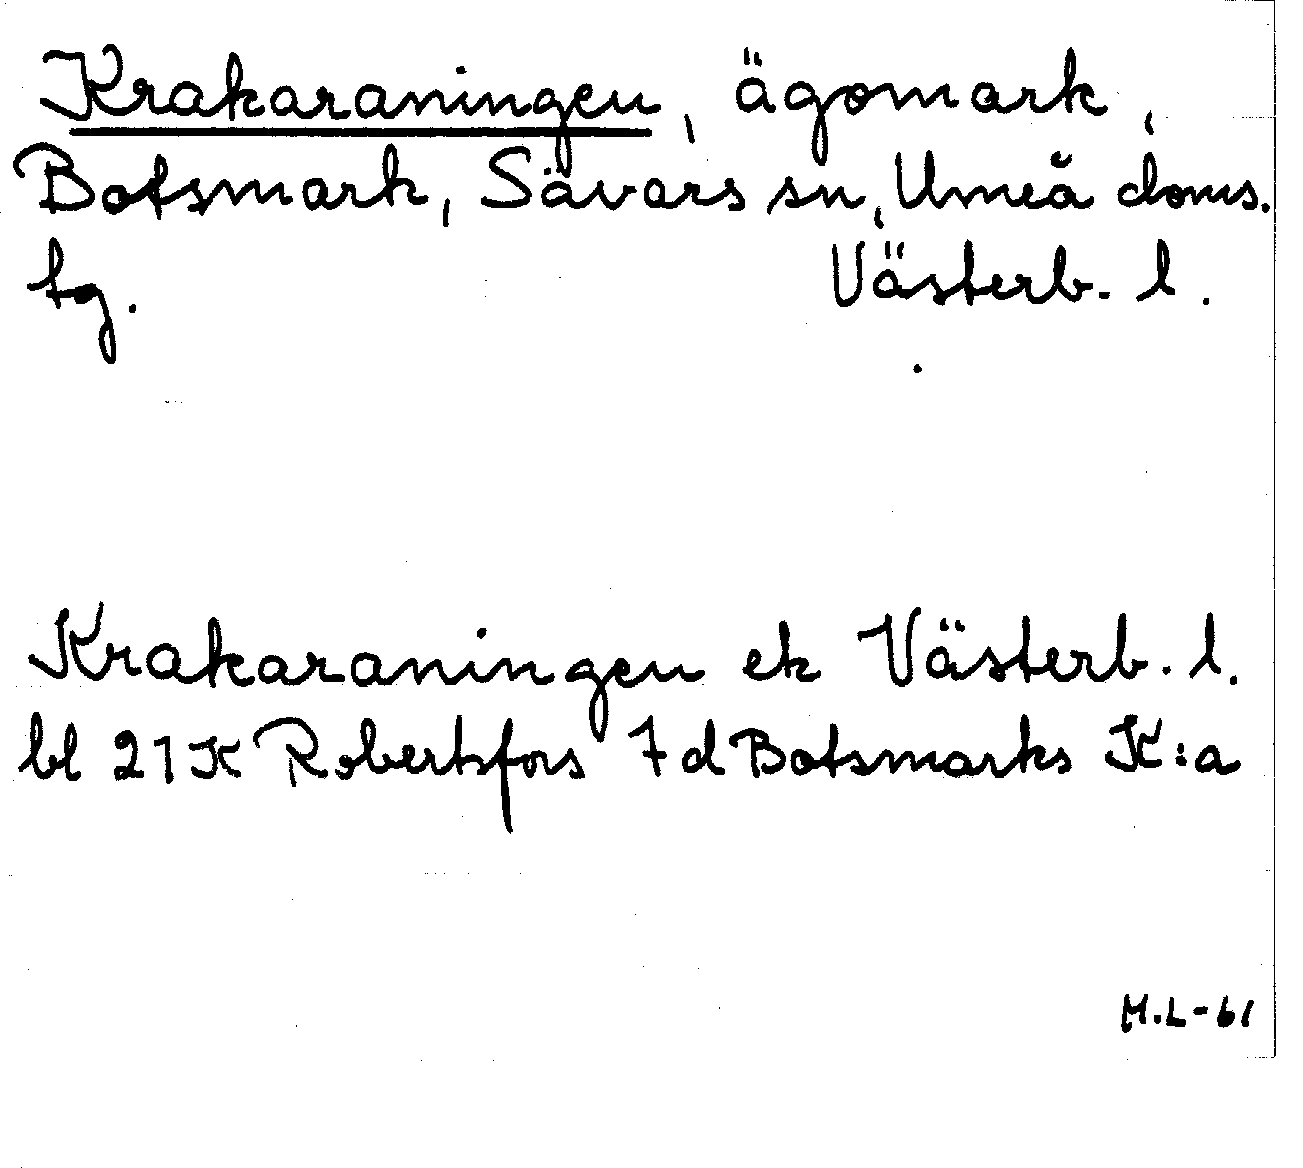 Krakaraningen, ägomark,
Botsmark, Sävars sn, Umeå doms.
tg. Västerb. l.
Krakaraningen ek Västerb. l.
bl 21K Robertsfors 7d Botsmarks K:a
M.L-61